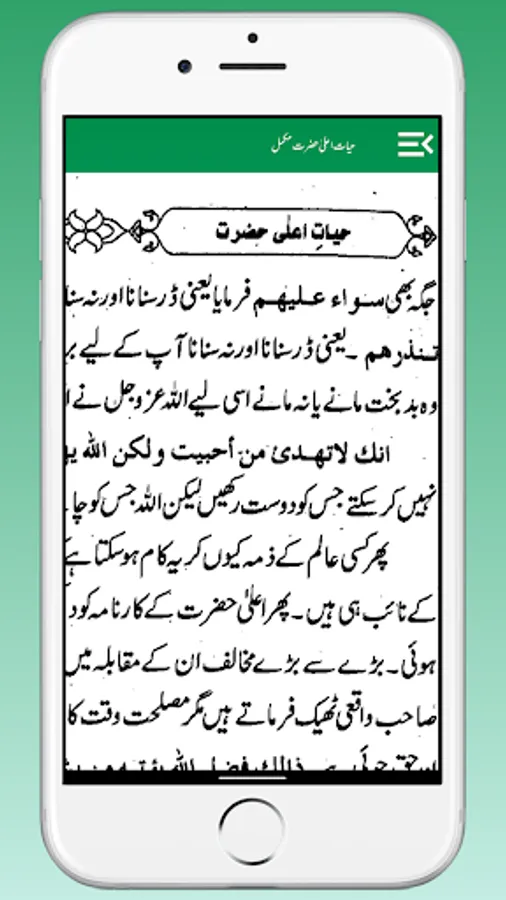 حیات اعلیٰ حضرت مکمل
حیاتِ اعلٰی حضرت
جگہ بھی سواء علیھم فرمایا یعنی ڈر سنانا اور نہ سنا
تنذرھم ۔ یعنی ڈر سنانا اور نہ سنانا آپ کے لیے بر
وہ بد بخت مانے یا نہ مانے اسی لیے اللہ عزوجل نے ا
انك لاتهدى من أحببت ولكن الله يه
نہیں کر سکتے جس کو دوست رکھیں لیکن اللہ جس کو چا
پھر کسی عالم کے ذمہ کیوں کر یہ کام ہو سکتا ہے
کے نائب ہی ہیں۔ پھر اعلیٰ حضرت کے کارنامہ کو د
ہوئی۔ بڑے سے بڑے مخالف ان کے مقابلہ میں
صاحب واقعی ٹھیک فرماتے ہیں مگر مصلحت وقت کا
ذالك فضل الله